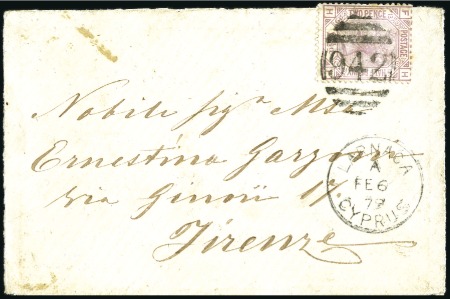 PENCE
POSTAGE
F
H
H
942
Nobile sigr Mse
Ernestina Garzoni
via Ginori 11.
Firenze
LARNACA
A
FE 6
79
CYPRUS